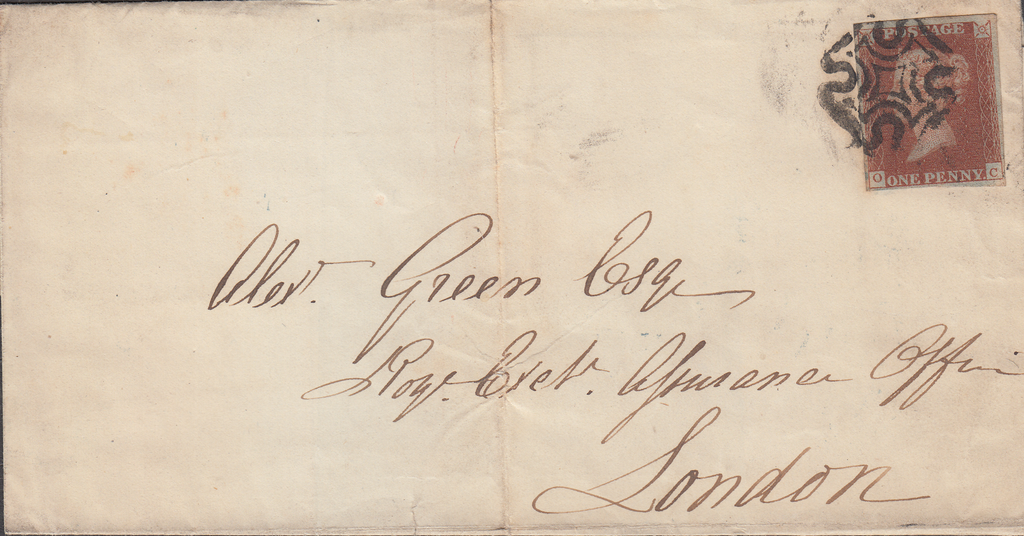 POSTAGE
O C
ONE PENNY.
Alexr. Green Esqr
Roy. Exch. Assurance Office
London